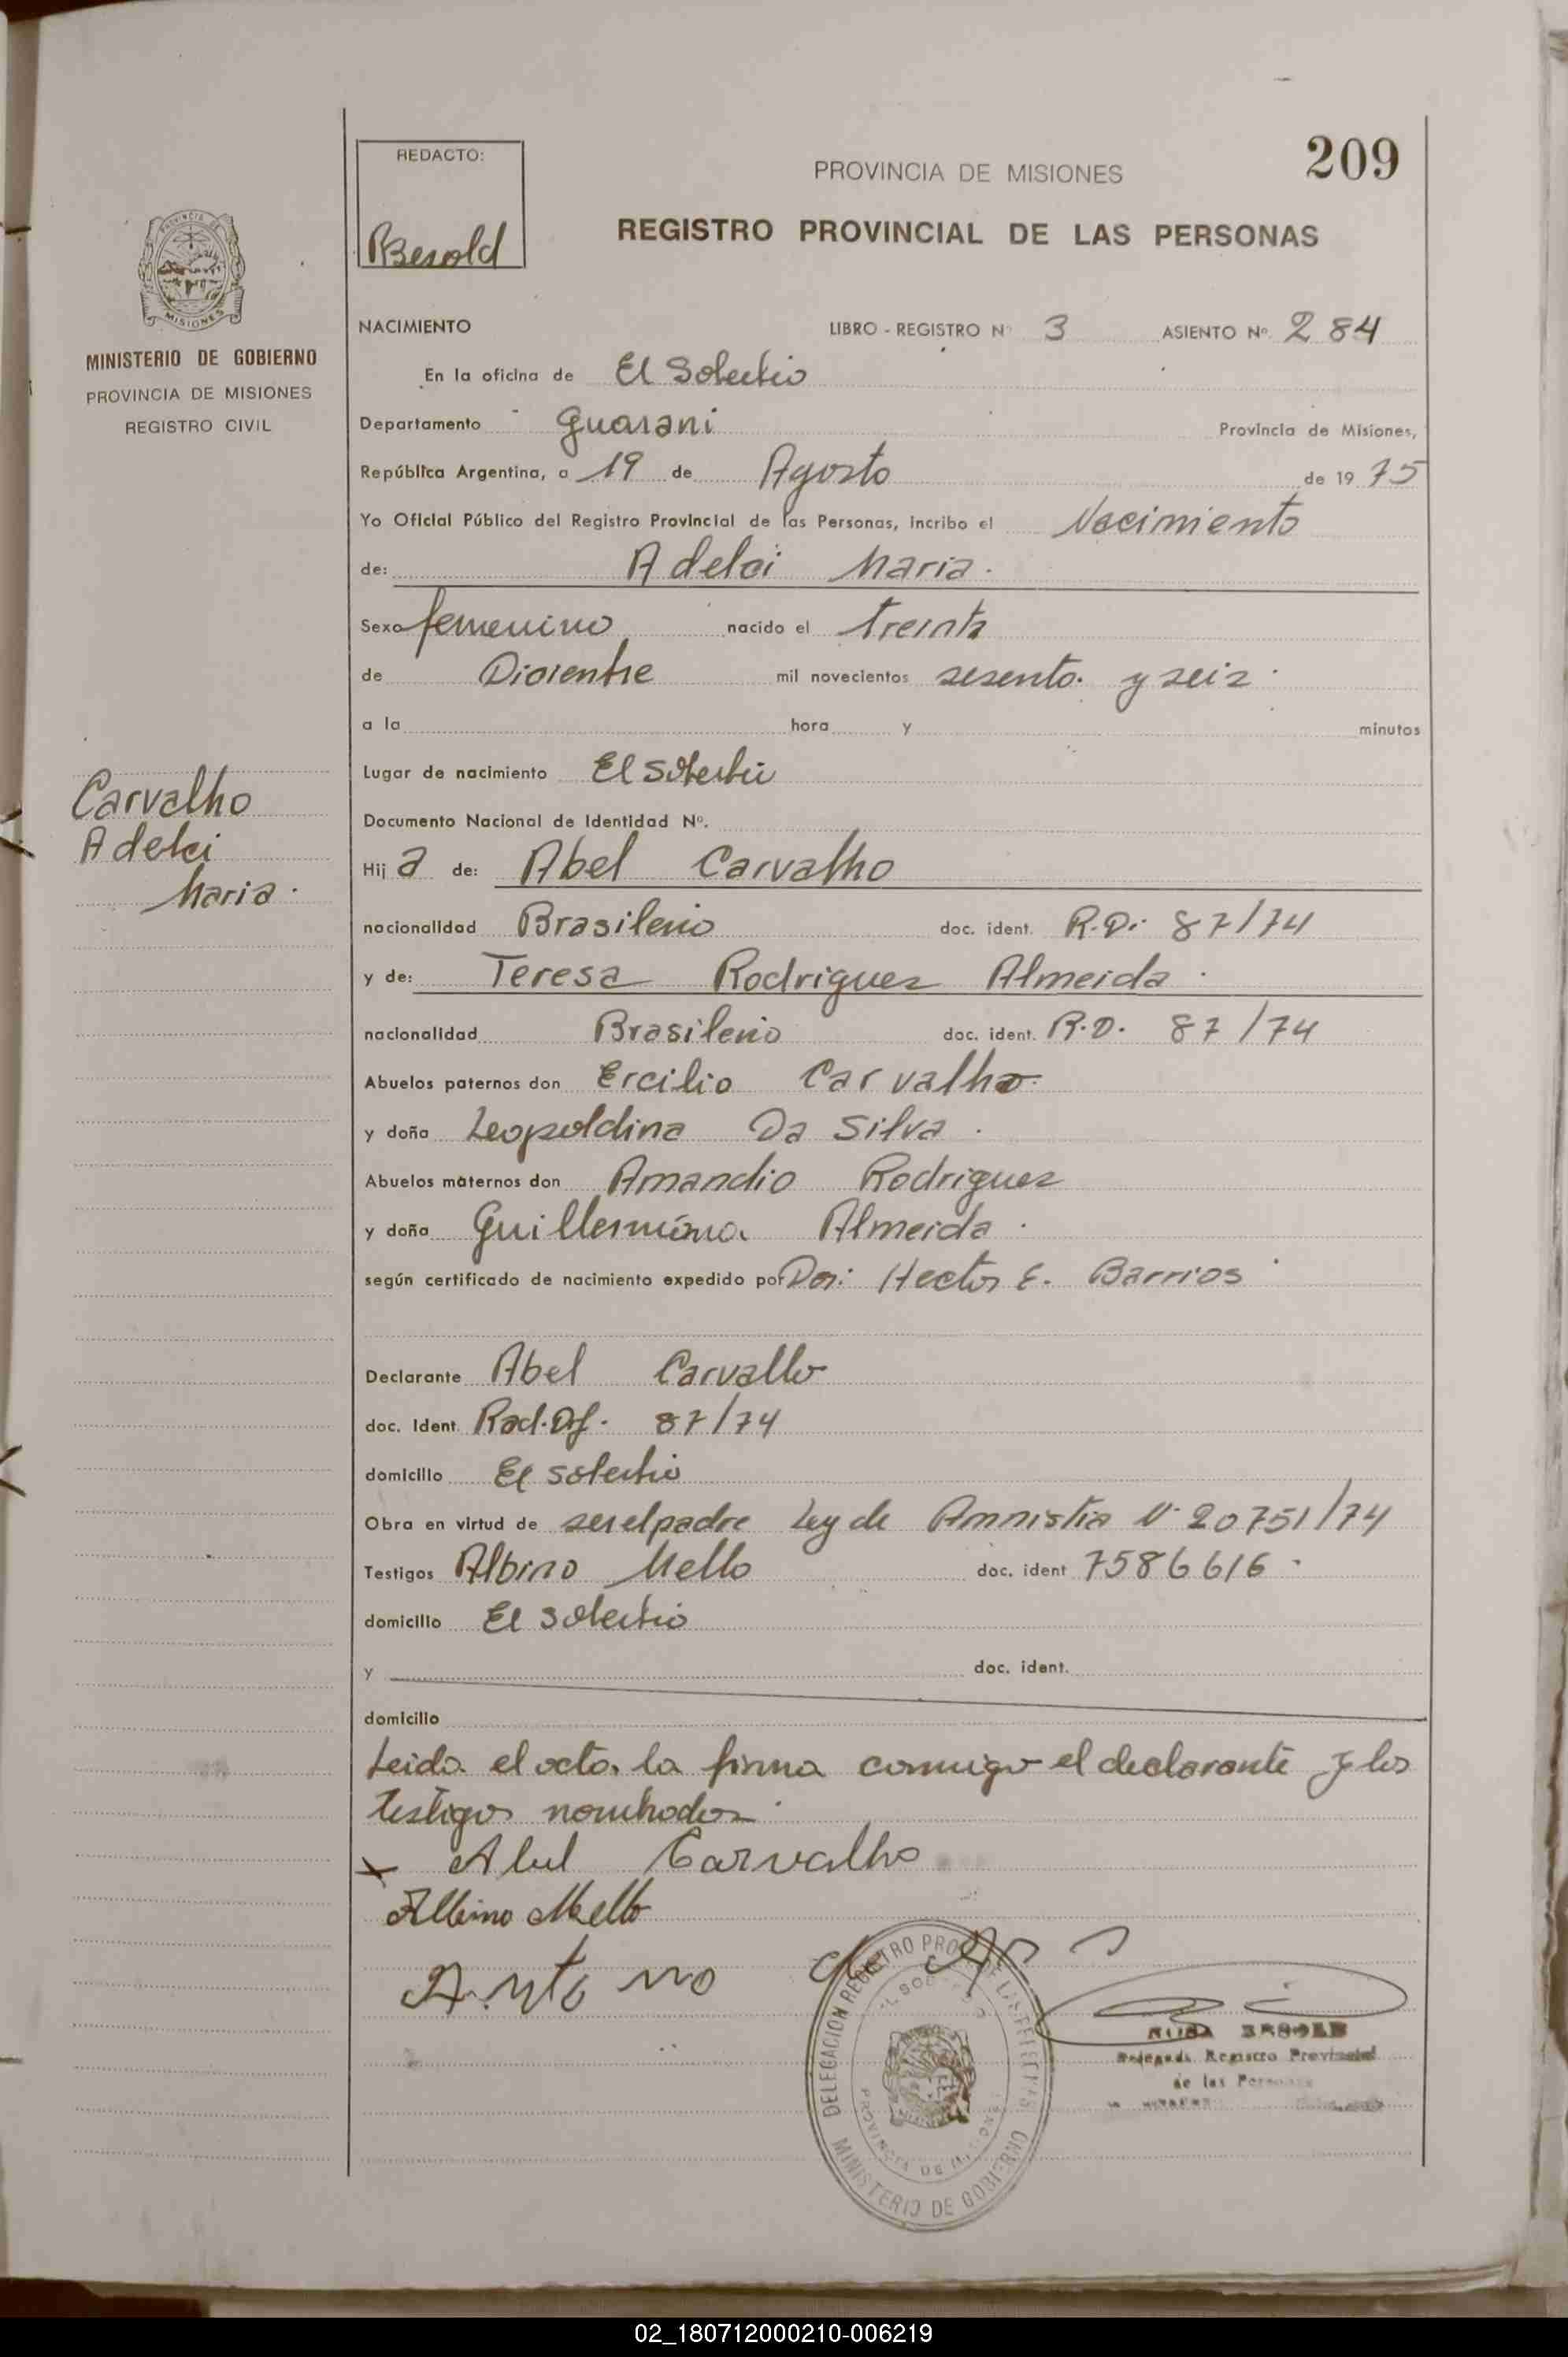 209
REDACTO:
Besold
PROVINCIA DE MISIONES
REGISTRO PROVINCIAL DE LAS PERSONAS
PROVINCIA DE
MISIONES
MINISTERIO DE GOBIERNO
PROVINCIA DE MISIONES
REGISTRO CIVIL
NACIMIENTO LIBRO - REGISTRO Nº 3 ASIENTO Nº. 284
En la oficina de El Soberbio
Departamento Guarani Provincia de Misiones,
República Argentina, a 19 de Agosto de 1975
Yo Oficial Público del Registro Provincial de las Personas, incribo el Nacimiento
de: Adelci Maria.
Sexo femenino nacido el treinta
de Diciembre mil novecientos sesenta y seis.
a la hora y minutos
Lugar de nacimiento El Soberbio
Documento Nacional de Identidad Nº.
Carvalho
Adelci
Maria.
Hija de: Abel Carvalho
nacionalidad Brasilenio doc. ident. R.D. 87/74
y de: Teresa Rodriguez Almeida.
nacionalidad Brasilenio doc. ident. R.D. 87/74
Abuelos paternos don Ercilio Carvalho.
y doña Leopoldina Da Silva.
Abuelos maternos don Amandio Rodriguez
y doña Guillermina Almeida.
según certificado de nacimiento expedido por Dor: Hector E. Barrios.
Declarante Abel Carvalho
doc. Ident. Rad. Def. 87/74
domicilio El Soberbio
Obra en virtud de ser el padre Ley de Amnistia Nº 20751/74
Testigos Albino Mello doc. ident 7586616.
domicilio El Soberbio
y doc. ident.
domicilio
Leida el acta. la firma conmigo el declarante y los
testigos nombrados.
x Abel Carvalho
Albino Mello
Antonio de
DELEGACION REGISTRO PROVINCIAL DE LAS PERSONAS
PROVINCIA DE MISIONES
MINISTERIO DE GOBIERNO
ROSA BESOLD
Delegada Registro Provincial
de las Personas
02_180712000210-006219